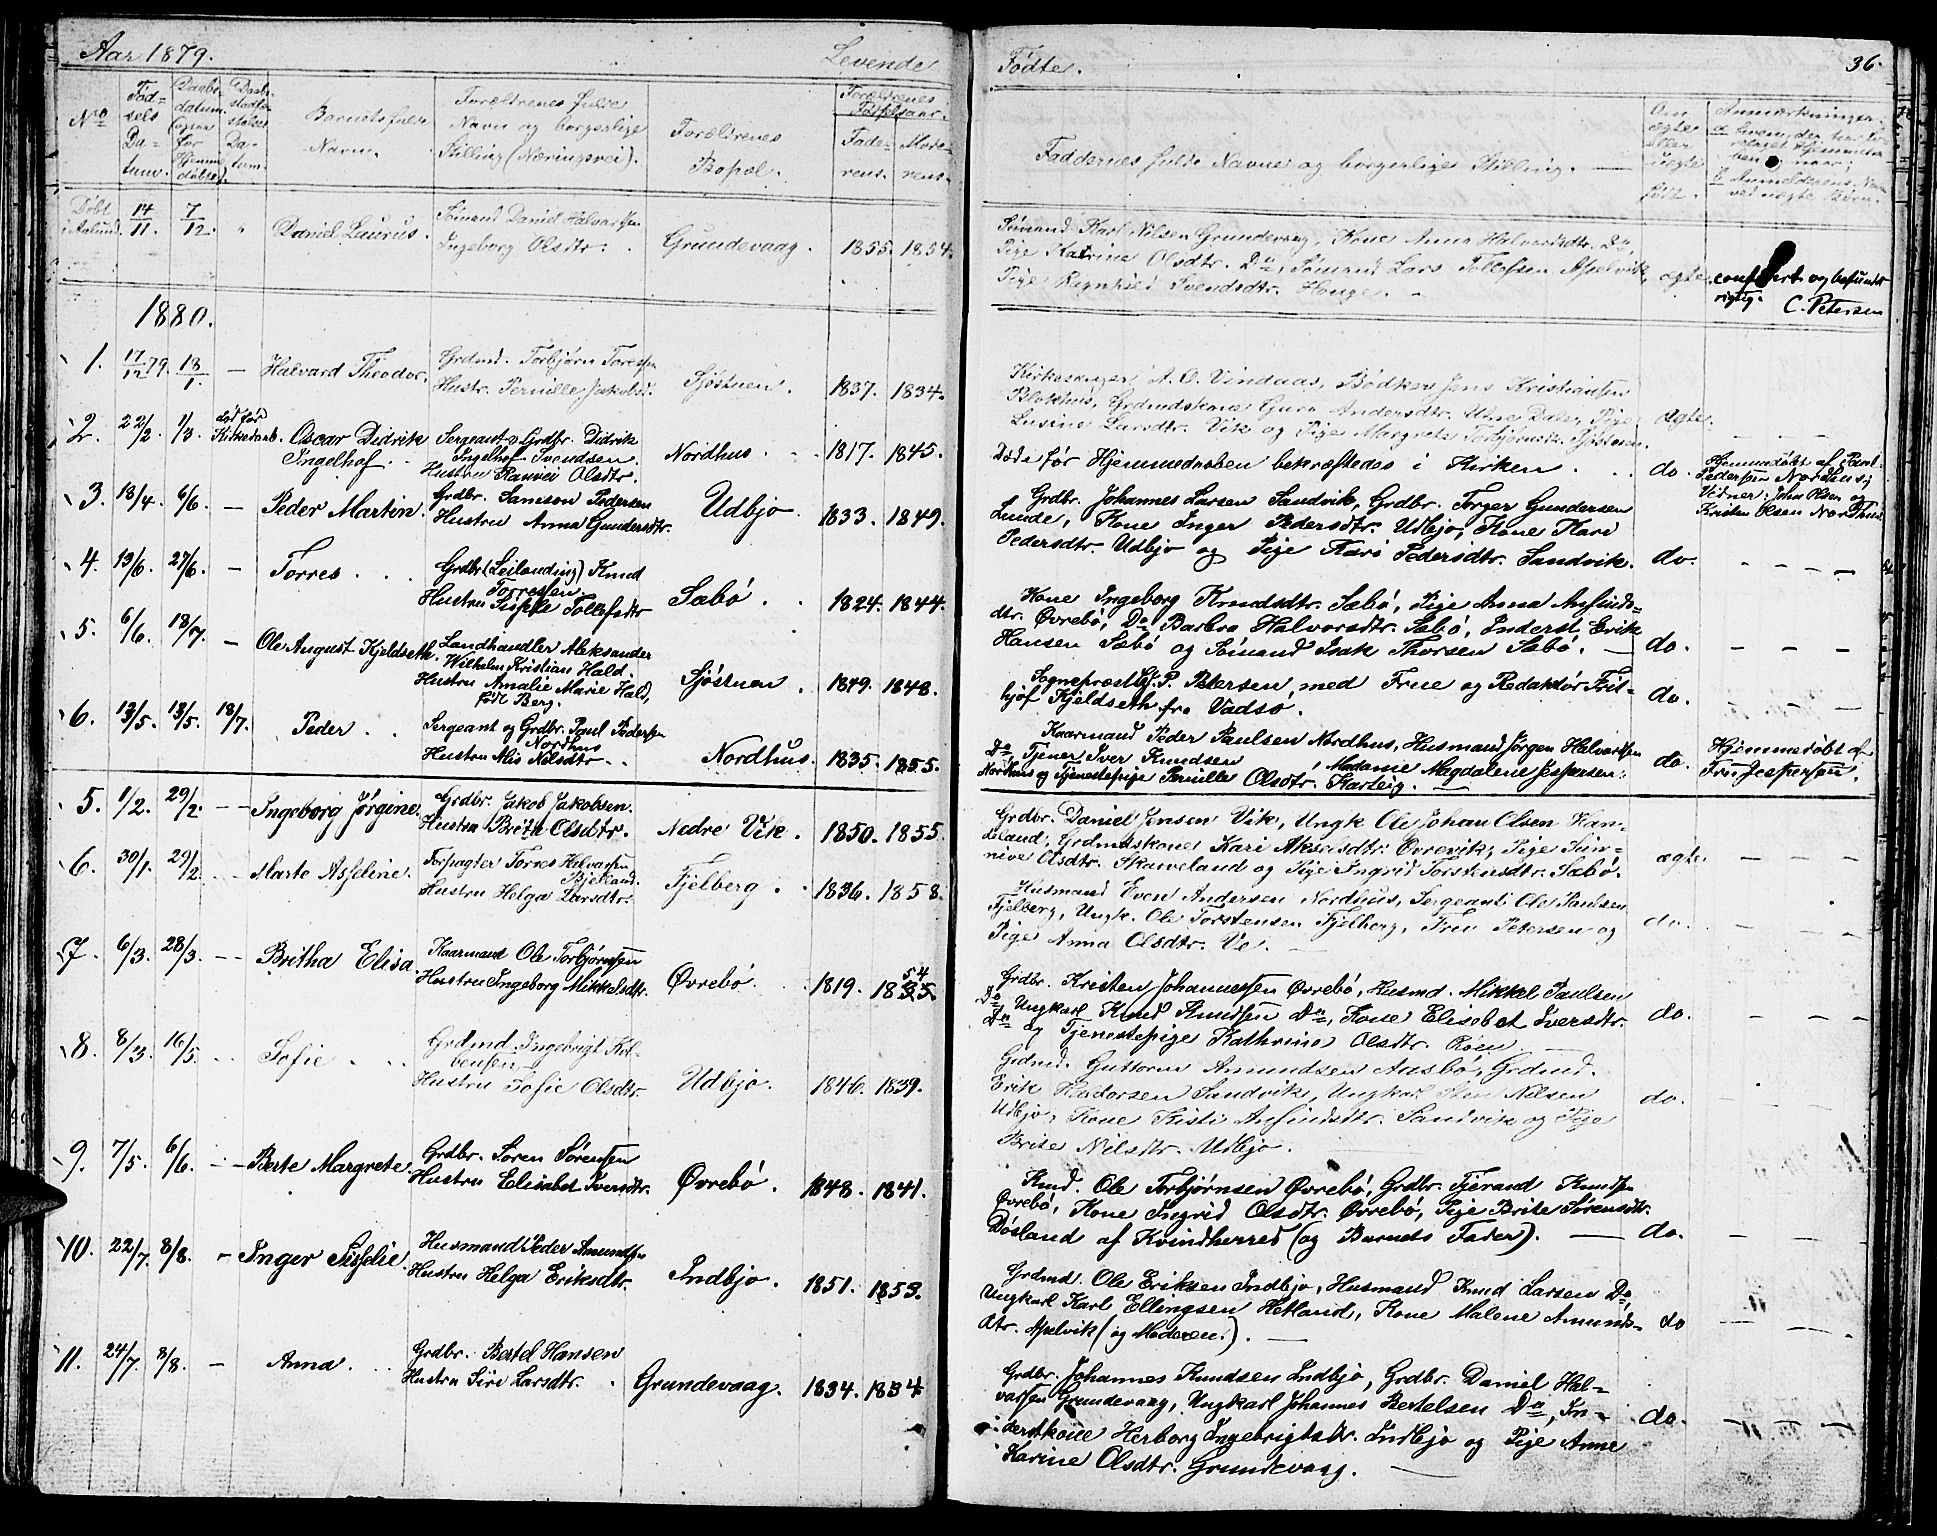 Aar 1879.
Levende
Fødte.
36.
No
Fød-
sels
Da-
tum.
Daabs
datum
(ogsaa
for
Hjemme
døbte).
Daabs
stadfæ
stelses
Da-
tum.
Barnets fulde
Navn.
Forældrenes fulde
Navn og borgerlige
Stilling (Næringsvei).
Forældrenes
Bopæl.
Forældrenes
Fødselsaar.
Fade-
rens.
Mode-
rens.
Faddernes fulde Navne og borgerlige Stilling.
Om
ægte
eller
uægte
født.
Anmærkninger.
Døbt
14/11. 7/12. Daniel Laurus.
Sømand Daniel Halvarssen
Ingeborg Olsdtr.
Grundevaag. 1855. 1854.
Sømand Karl Nilsen Grundevaag, Kone Anna Halvardsdtr. Do,
Pige Katrine Olsdtr. Do, Sømand Lars Tollefsen Apelvik,
Pige Ragnhild Svendsdtr. Hauge. -
ægte.
confert og befundet
rigtig. C. Petersen
1880.
1. 17/12 79. 18/1. — Halvard Theodor.
Grdmd. Torbjørn Toressen
Hustr. Pernille Jakobsd.
Sjøstuen. 1837. 1834.
Kirkesanger A. O. Vindaas, Bødker Jens Kristiansen
Blokhus, Grdmdskone Guro Andersdtr. Utne Dale, Pige
Lusine Larsdtr. Vik og Pige Margreta Torbjørnsdr. Sjøstuen.
ægte.
2. 22/2. 1/3. død før
Kirkedaab. Oscar Didrik
Ingelhof.
Sergeant & Grdbr. Didrik
Ingelhof Svendsen
Hustru Ranvei Olsdtr.
Nordhus. 1817. 1845.
Døde før Hjemmedaaben bekræftedes i Kirken.
do.
Hjemmedøbt af Paul
Pedersen Nordhus;
Vidner: John Olsen og
Kristen Olsen Nordhus
3. 18/4. 6/6. — Peder Martin.
Grdbr. Samson Pedersen
Hustru Anna Gundersdtr.
Udbjo. 1833. 1849.
Grdbr. Johannes Larsen Sandvik, Grdbr. Torger Gundersen
Lunde, Kone Inger Pedersdtr. Udbjo, Kone Kari
Pedersdtr. Udbjo og Pige Kari Pedersdtr. Sandvik.
do.
4. 13/6. 27/6. — Torres.
Grdbr. (Leilænding) Knud
Torressen
Hustru Sissele Tollefsdtr
Sæbó. 1824. 1844.
Kone Ingeborg Knudsdtr. Sæbó, Pige Anna Anfinds-
dtr. Øvrebó, Do Barbra Halvorsdtr. Sæbó, Inderst Erik
Hansen Sæbó og Sómand Isak Thorsen Sæbó. —
do.
5. 6/6. 18/7. — Ole August Kjeldseth.
Landhandler Aleksander
Wilhelm Kristian Hald.
Hustru Amalie Marie Hald,
født Berg.
Sjøstuen. 1849. 1848.
Sognepræst C. P. Petersen, med Frue og Redaktør Frit-
hjof Kjeldseth fra Vadsø.
do.
6. 13/5. 13/5. 18/7. Peder.
Sergeant og Grdbr. Paul Pedersen
Nordhus
Hustru Mis Nilsdtr.
Nordhus. 1835. 1855.
Kaarmand Peder Paulsen Nordhus, Husmand Jørgen Halvorssen
Do Tjener Iver Knudsen, Madame Magdalene Jespersen:
Nordhus og Tjenestepige Pernille Olsdtr. Kartveig. —
do.
Hjemmedøbt af
Fru Jespersen.
5. 1/2. 29/2. — Ingeborg Jørgine.
Grdbr. Jakob Jakobsen.
Hustru Brita Olsdtr.
Nedre Vik. 1850. 1855.
Grdbr. Daniel Jensen Vik, Ungk. Ole Johan Olsen Han-
deland; Grdmdskone Kari Akselsdtr. Øvrevik; Pige Sun-
nive Olsdtr. Skaaveland og Pige Ingrid Torstensdtr. Sæbó.
ægte.
6. 30/1. 29/2. Marte Asseline.
Forpagter Torres Halvarssen
Bjelland.
Hustru Helga Larsdtr.
Fjelberg. 1836. 1858.
Husmand Even Andersen Nordhus, Sergeant Ole Paulsen
Fjelberg, Ungk. Ole Torstensen Fjelberg, Fru Petersen og
Pige Anna Olsdtr. Vo.
do.
7. 6/3. 28/3. — Britha Elisa.
Kaarmand Ole Torbjørnsen
Hustru Ingeborg Mikkelsdtr.
Øvrebó. 1819. 1835.
54
Grdbr. Kristen Johannessen Øvrebó, Husmd. Mikkel Paulsen
Do Ungkarl Knud Knudsen Do, Kone Elisabet Iversdtr.
Do og Tjenestepige Kathrine Olsdtr. Røen. —
do.
8. 8/3. 16/5. Sofie.
Grdmd. Ingebrigt Kol-
bensen
Hustru Sofie Olsdtr.
Udbjo. 1846. 1839.
Grdmd. Guttorm Amundsen Aasbó, Grdmd.
Erik Haldorsen Sandvik, Ungkarl Nilsen
Udbjo, Kone Kristi Anfindsdtr. Sandvik og Pige
Brite Nilsdtr. Udbjo.
do.
9. 7/5. 6/6. — Berte Margrete.
Grdbr. Søren Sørensen
Hustru Elisabet Iversdtr.
Øvrebó. 1848. 1841.
Kmd. Ole Torbjørnsen Øvrebó, Grdbr. Tjerand Knudsen
Øvrebó, Kone Ingrid Olsdtr. Øvrebó, Pige Brite Sørensdtr.
Døsland af Kvindherred (og Barnets Fader). —
do.
10. 22/7. 8/8. - Inger Sisselie.
Husmand Peder Amundsen
Hustru Helga Eriksdtr.
Indbjo. 1851. 1853.
Grdmd. Ole Eriksen Indbjo, Husmand Knud Larsen Do,
Ungkarl Karl Ellingsen Hetland, Kone Malene Amunds-
dtr. Apelvik (og Moderen). —
do
11. 24/7. 8/8. — Anna.
Grdbr. Bertel Hansen
Hustru Siri Larsdtr.
Grundevaag. 1834. 1834
Grdbr. Johannes Knudsen Indbjo, Grdbr. Daniel Hal-
varssen Grundevaag, Ungkarl Johannes Bertelsen Do, In-
derstkone Herborg Ingebrigtsdtr. Indbjo og Pige Anne
Karine Olsdtr. Grundevaag. —
do.